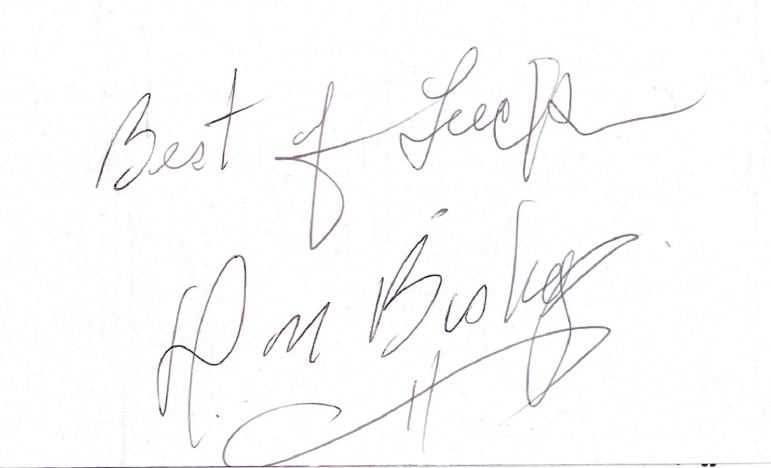 Best of Luck
Don